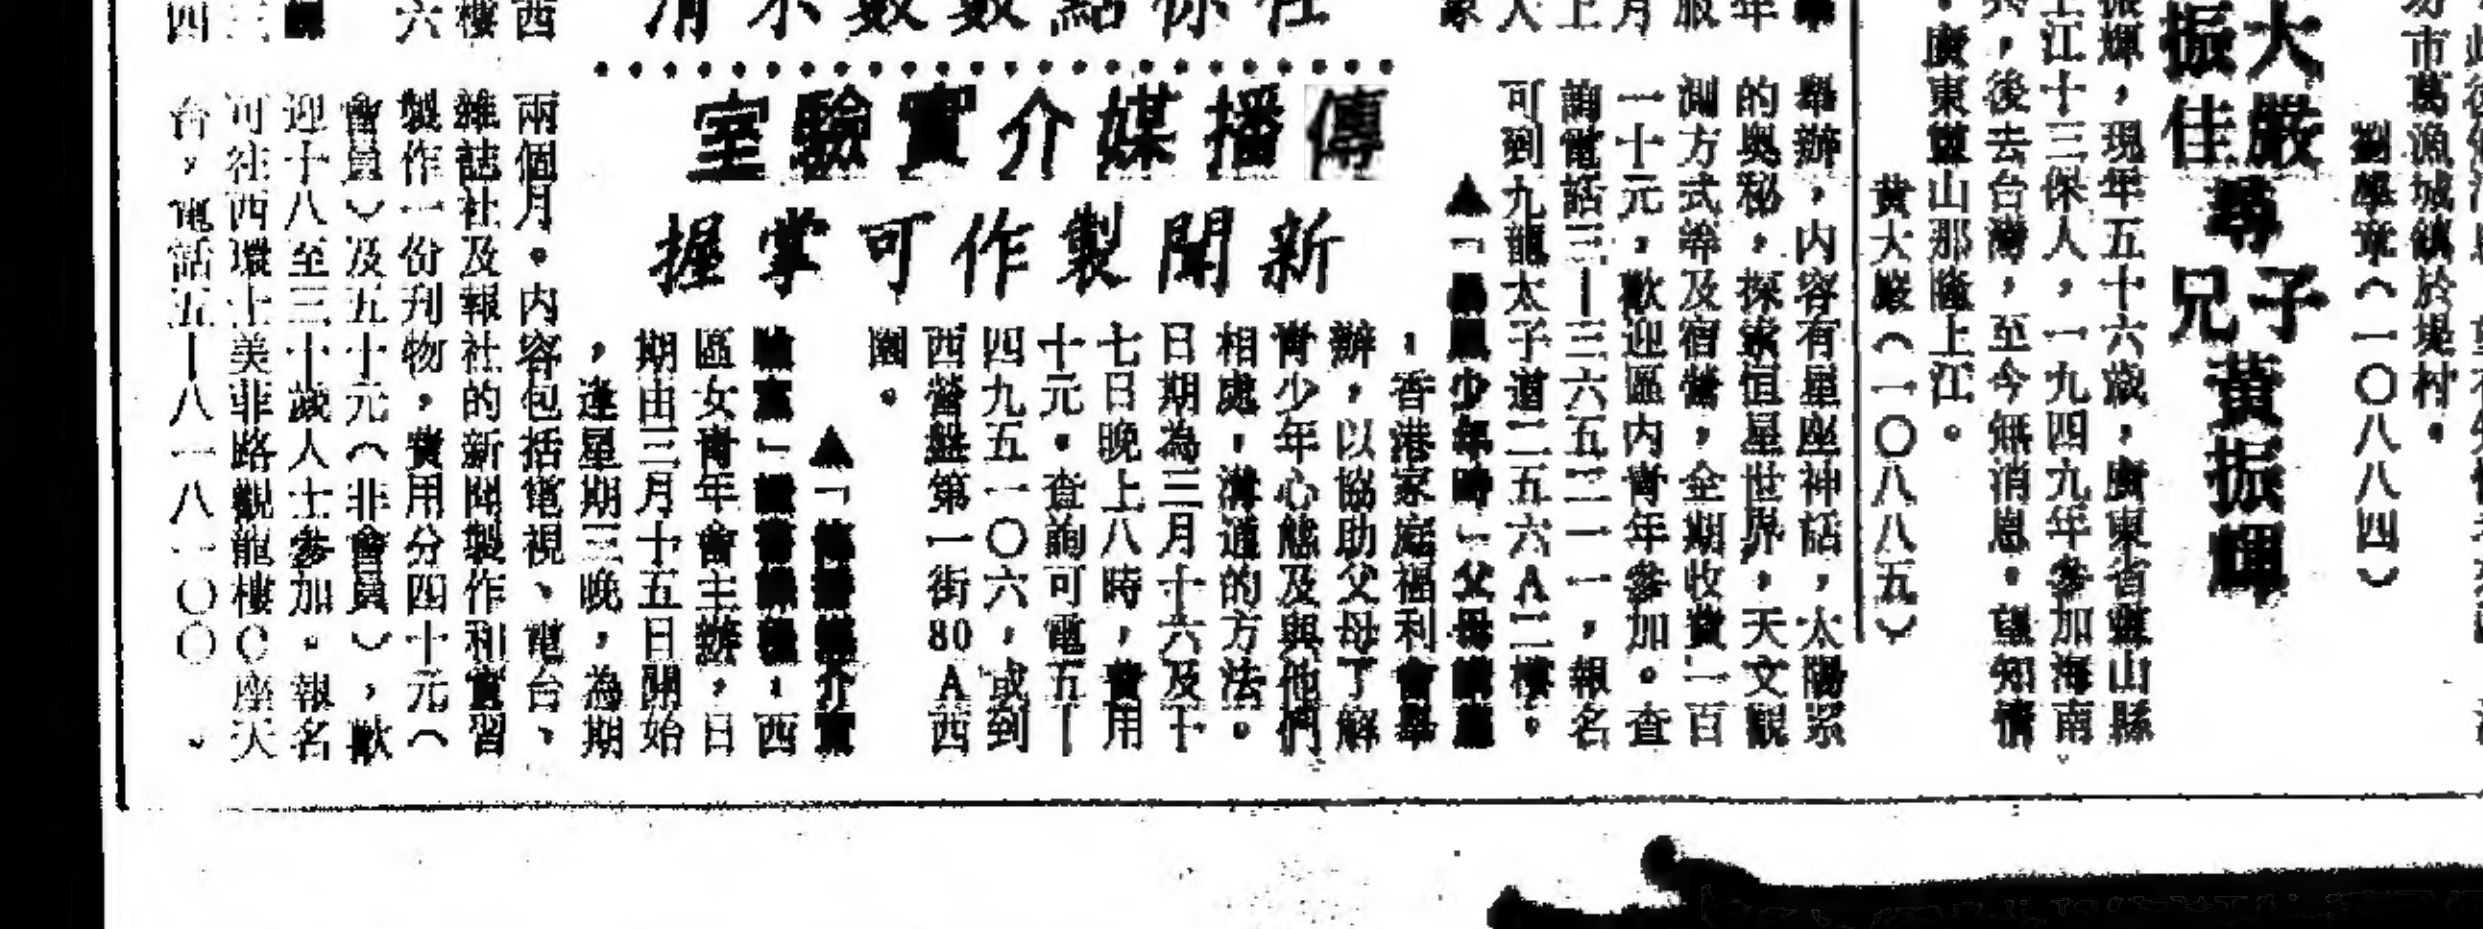 此後
勿市葛漁城鎮於堤村。
劉學章(一〇八八四)
大嚴尋子黃振輝
振佳 兄
振輝,現年五十六歲,廣東省靈山縣
上江十三保人,一九四九年參加海南
兵,後去台灣,至今無消息。望知情
,廣東靈山那隆上江。
黃大嚴(一〇八八五)
舉辦,內容有星座神話,太陽系
的奧秘,探索恒星世界,天文觀
測方式等及宿營,全期收費一百
一十元,歡迎區內青年參加。查
詢電話三—三六五三一一一,報名
可到九龍太子道二五六A二樓。
▲「暴風少年時」父母講座
:香港家庭福利會舉
辦,以協助父母了解
青少年心態及與他們
相處,溝通的方法。
日期為三月十六及十
七日晚上八時,費用
十元。查詢可電五—
四九五一〇六,或到
西營盤第一街80A西
園。
傳播媒介實驗室
新聞製作可掌握
▲「傳播媒介實
驗室」課程:西
區女青年會主辦,日
期由三月十五日開始
,逢星期三晚,為期
兩個月。內容包括電視、電台、
雜誌社及報社的新聞製作和實習
製作一份刋物,費用分四十元(
會員)及五十元(非會員),歡
迎十八至三十歲人士參加。報名
可往西環士美菲路觀龍樓C座天
台,電話五—八一八一〇〇。